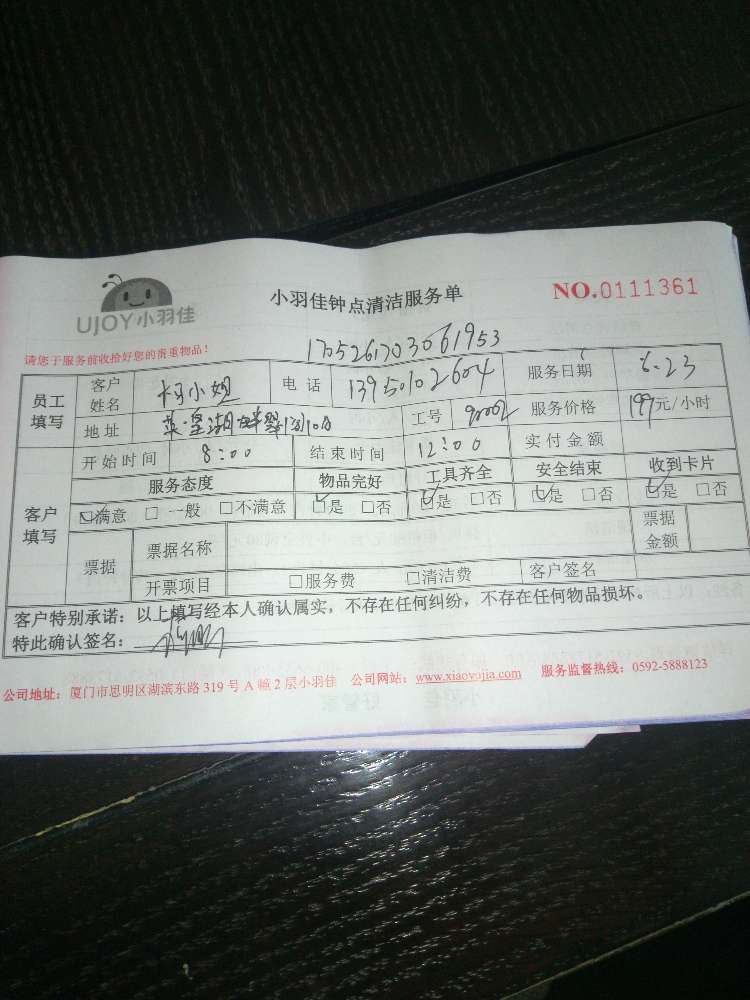 UJOY小羽佳
小羽佳钟点清洁服务单
NO.0111361
请您于服务前收拾好您的贵重物品!
1705261703061953
员工填写 客户姓名 小姐 电话 13950102604 服务日期 6.23
地址 工号 90002 服务价格 199元/小时
客户填写 开始时间 8:00 结束时间 12:00 实付金额
服务态度 物品完好 工具齐全 安全结束 收到卡片
☑满意 □一般 □不满意 ☑是 □否 ☑是 □否 ☑是 □否 ☑是 □否
票据 票据名称 票据金额
开票项目 □服务费 □清洁费 客户签名
客户特别承诺:以上填写经本人确认属实,不存在任何纠纷,不存在任何物品损坏。
特此确认签名:
公司地址:厦门市思明区湖滨东路 319 号 A 幢 2 层小羽佳 公司网站:www.xiaoyujia.com 服务监督热线:0592-5888123